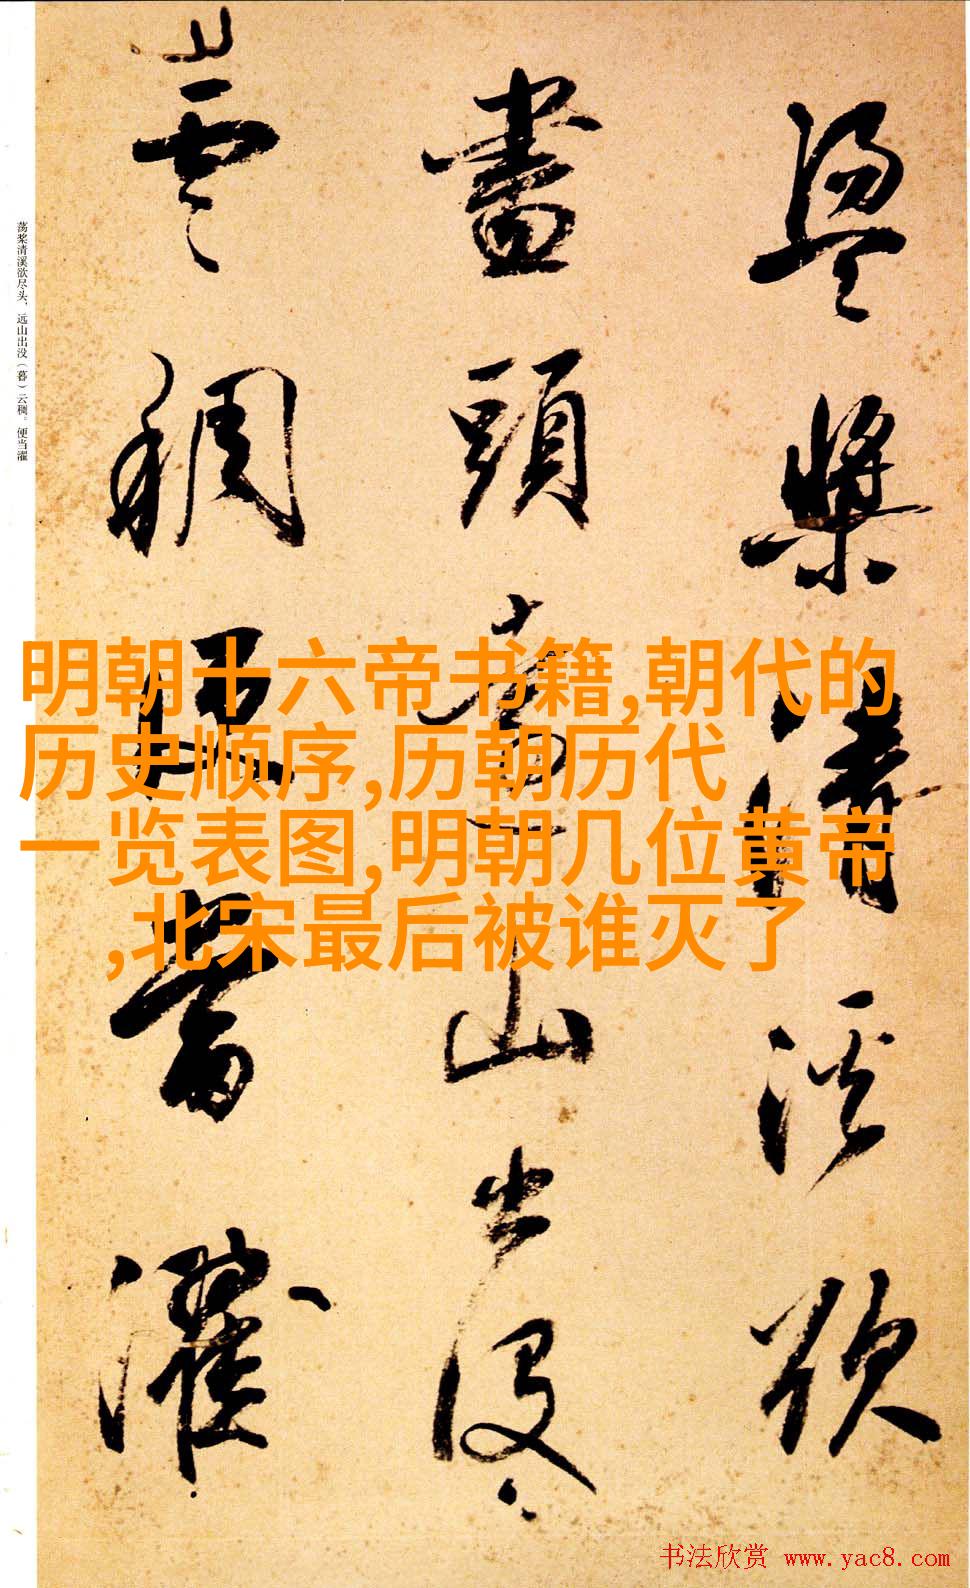 盪槳清溪欲
盡頭遠山出没
雲稠便當濯
荡桨清溪欲尽头，远山出没（暮）云稠。便当濯
明朝十六帝书籍,朝代的
历史顺序,历朝历代
一览表图,明朝几位黄帝
,北宋最后被谁灭了
书法欣赏 www.yac8.com